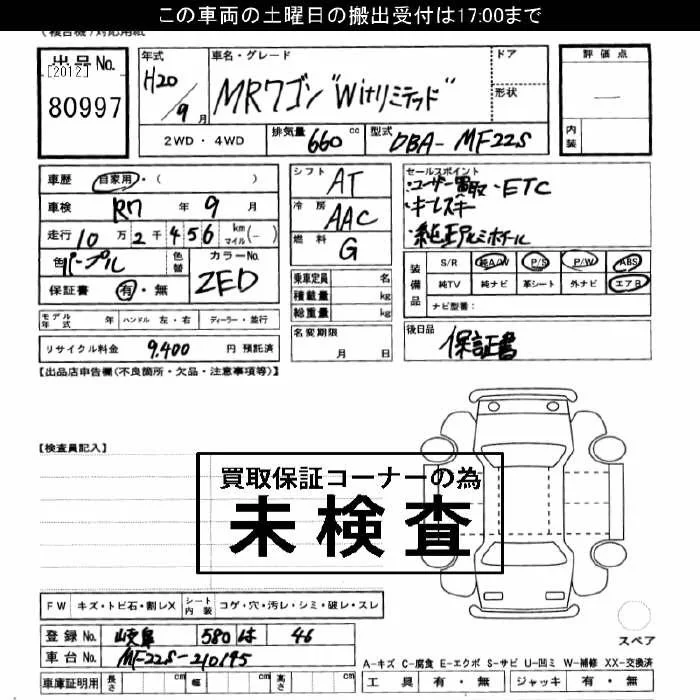 この車両の土曜日の搬出受付は17:00まで
出品No.
[2012]
80997
年式
H20/9月
車名・グレード
MRワゴン"Witリミテッド"
ドア
形状
評価点
内装
2WD・4WD
排気量 660 cc
型式 DBA-MF22S
車歴 自家用・( )
車検 R7年9月
走行 10万2千456 km マイル(-)
色 パープル
色替
カラーNo. ZED
保証書 有・無
シフト AT
冷房 AAC
燃料 G
乗車定員 名
積載量 kg
総重量 kg
名変期限 月 日
セールスポイント
・ユーザー買取・ETC
・キーレスキー
・純正アルミホイール
装備品
S/R 純A/W P/S P/W ABS
純TV 純ナビ 革シート 外ナビ エアB
ナビ型番:
モデル年式 年 ハンドル 左・右 ディーラー・並行
リサイクル料金 9,400 円 預託済
後日品 保証書
【出品店申告欄(不良箇所・欠品・注意事項等)】
【検査員記入】
買取保証コーナーの為
未検査
FW キズ・トビ石・割レX シート内装 コゲ・穴・汚レ・シミ・破レ・スレ
登録No. 岐阜 580 は 46
車台No. MF22S-210195
車庫証明用 長さ cm 幅 cm 高さ cm
スペア
A-キズ C-腐食 E-エクボ S-サビ U-凹ミ W-補修 XX-交換済
工具 有・無 ジャッキ 有・無